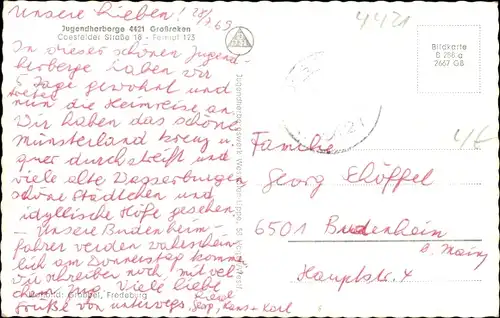 Unsere Lieben! 28/7 69
Jugendherberge 4421 Großreken
Coesfelder Straße 18 - Fernruf 123
In dieser schönen Jugend-
herberge haben wir
5 Tage gewohnt und
treten
nun die Heimreise an.
Wir haben das schöne
Münsterland kreuz u.
quer durchstreift und
viele alte Wasserburgen,
schöne Städtchen und
idyllische Höfe gesehen.
- Unsere Budenheim-
fahrer werden wahrschein-
lich am Donnerstag kommen,
wir schreiben noch mit wel-
chem Zug. Viele liebe
Grüße von unterwegs
Georg, Hans + Karl
Fredeburg
4421
Bildkarte
D 258 a
2667 GB
4421
4/6
Familie
Georg Schöffel
6501 Budenheim
b. Mainz
Hauptstr. 4